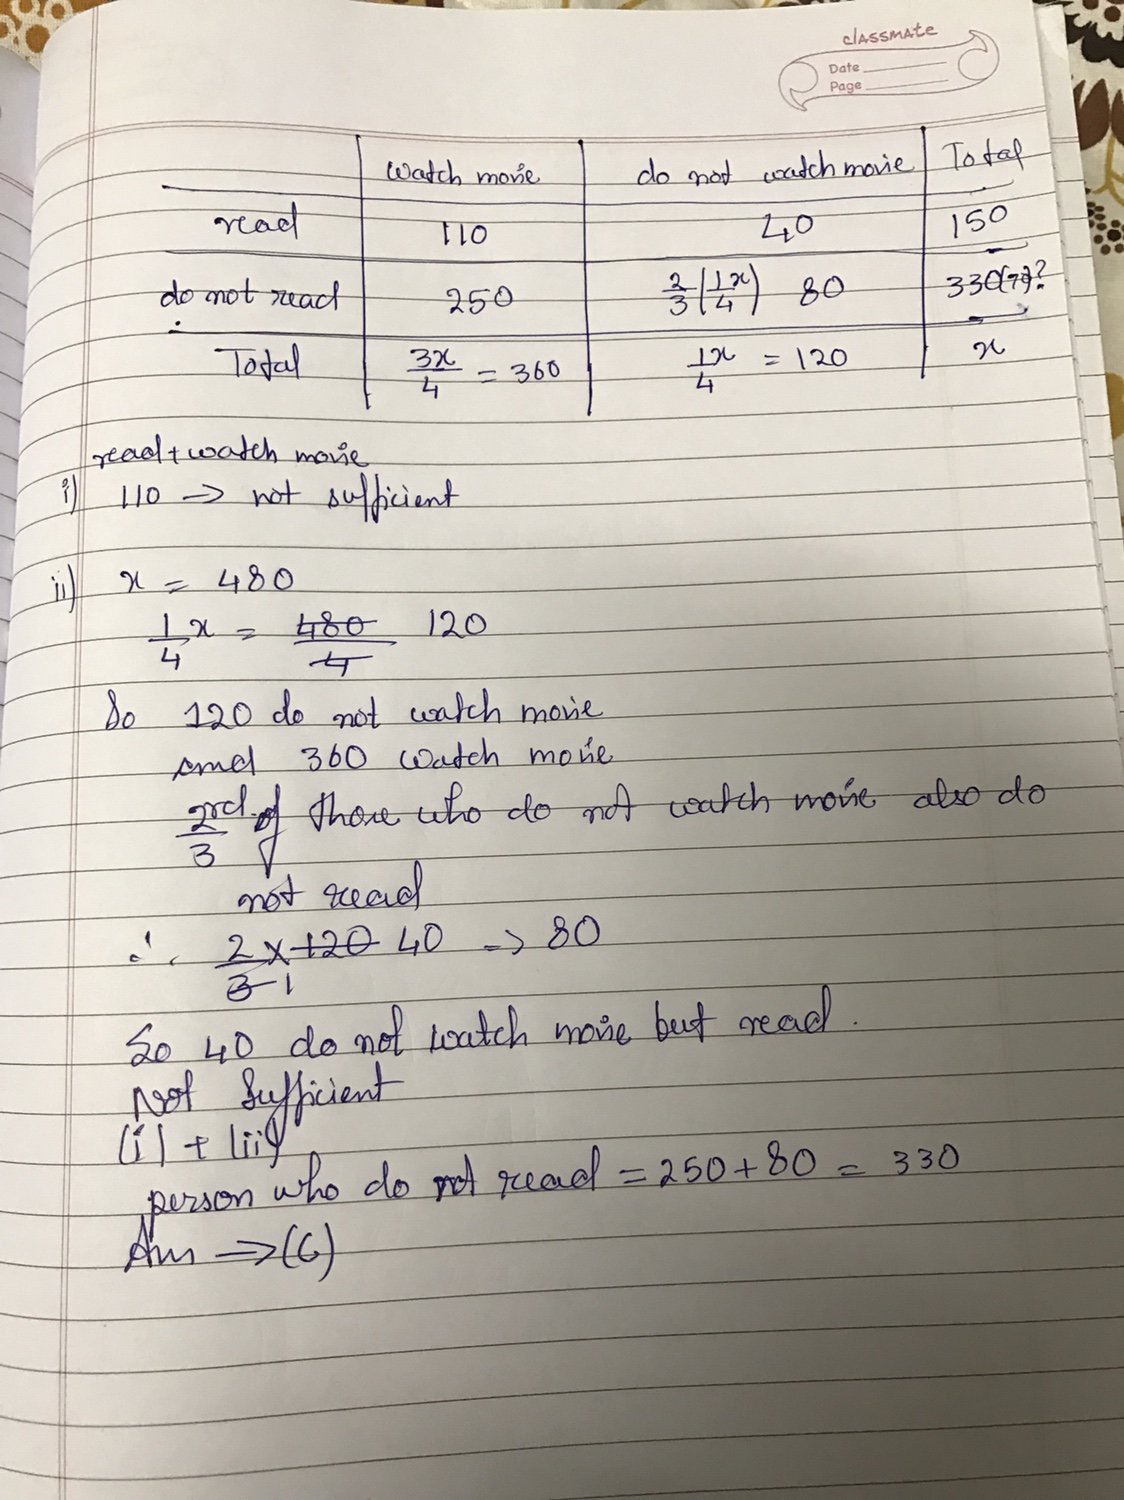 classmate
Date
Page
watch movie do not watch movie Total
read 110 40 150
do not read 250 2/3 (1x/4) 80 330(?)?
Total 3x/4 = 360 1x/4 = 120 x
read + watch movie
i) 110 → not sufficient
ii) x = 480
1/4 x = 480/4 120
So 120 do not watch movie
and 360 watch movie
2/3 rd of those who do not watch movie also do
not read
∴ 2/3 x 120 40 1 → 80
So 40 do not watch movie but read.
Not Sufficient
(i) + (ii)
person who do not read = 250 + 80 = 330
Ans ⇒ (C)